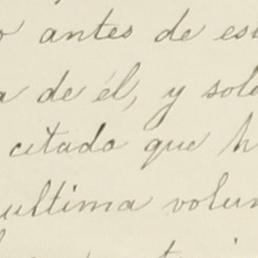 o antes de es
a de él, y sol
citado que h
ultima volun